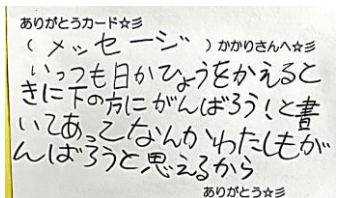 ありがとうカード☆彡
(メッセージ)かかりさんへ☆彡
いっつも日かひょうをかえると
きに下の方にがんばろう！と書
いてあってなんかわたしもが
んばろうと思えるから
ありがとう☆彡